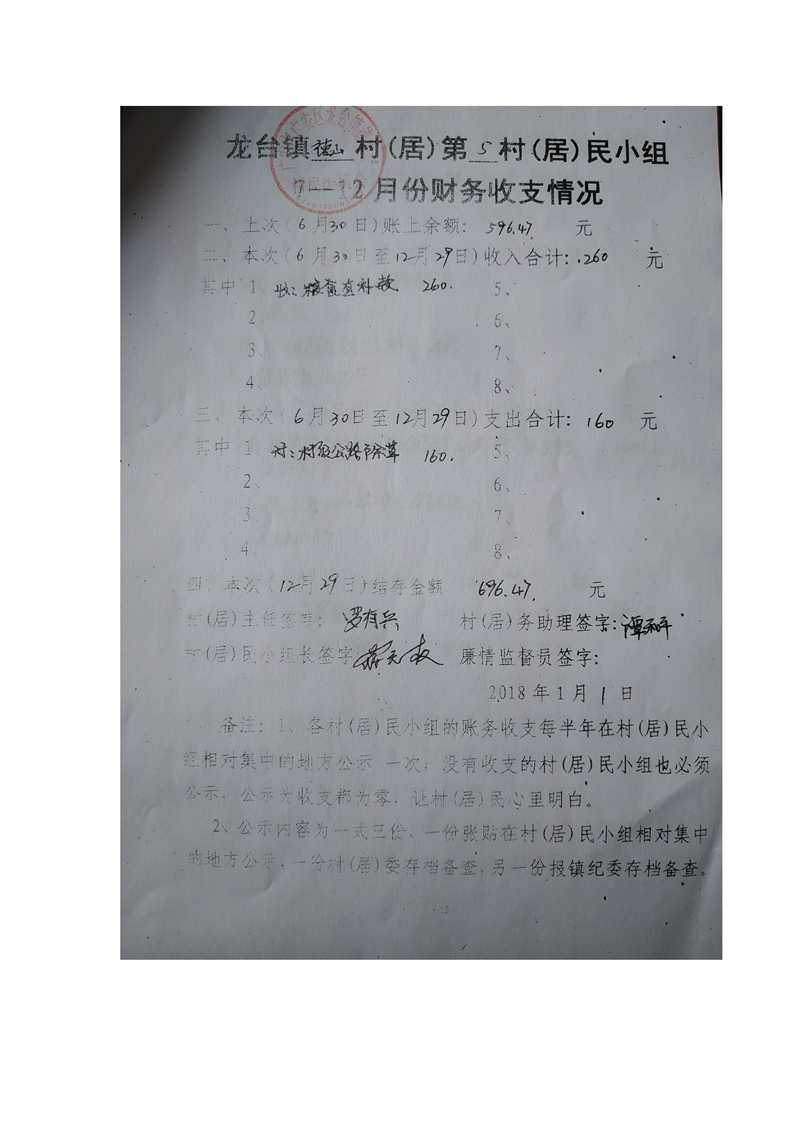 龙台镇德山村(居)第5村(居)民小组
7—12月份财务收支情况
一、上次(6月30日)账上余额: 596.47 元
二、本次(6月30日至12月29日)收入合计: 260 元
其中 1、收: 款 260. 5、
2、 6、
3、 7、
4、 8、
三、本次(6月30日至12月29日)支出合计: 160 元
其中 1、付:村级公路除草 160. 5、
2、 6、
3、 7、
4、 8、
四、本次(12月29日)结存金额 696.47. 元
村(居)主任签字: 罗有兵 村(居)务助理签字:谭
村(居)民小组长签字: 廉情监督员签字:
2018年1月1日
备注:1、各村(居)民小组的账务收支每半年在村(居)民小
组相对集中的地方公示一次;没有收支的村(居)民小组也必须
公示,公示为收支称为零,让村(居)民心里明白。
2、公示内容为一式三份、一份张贴在村(居)民小组相对集中
的地方公示,一份村(居)委存档备查,另一份报镇纪委存档备查。